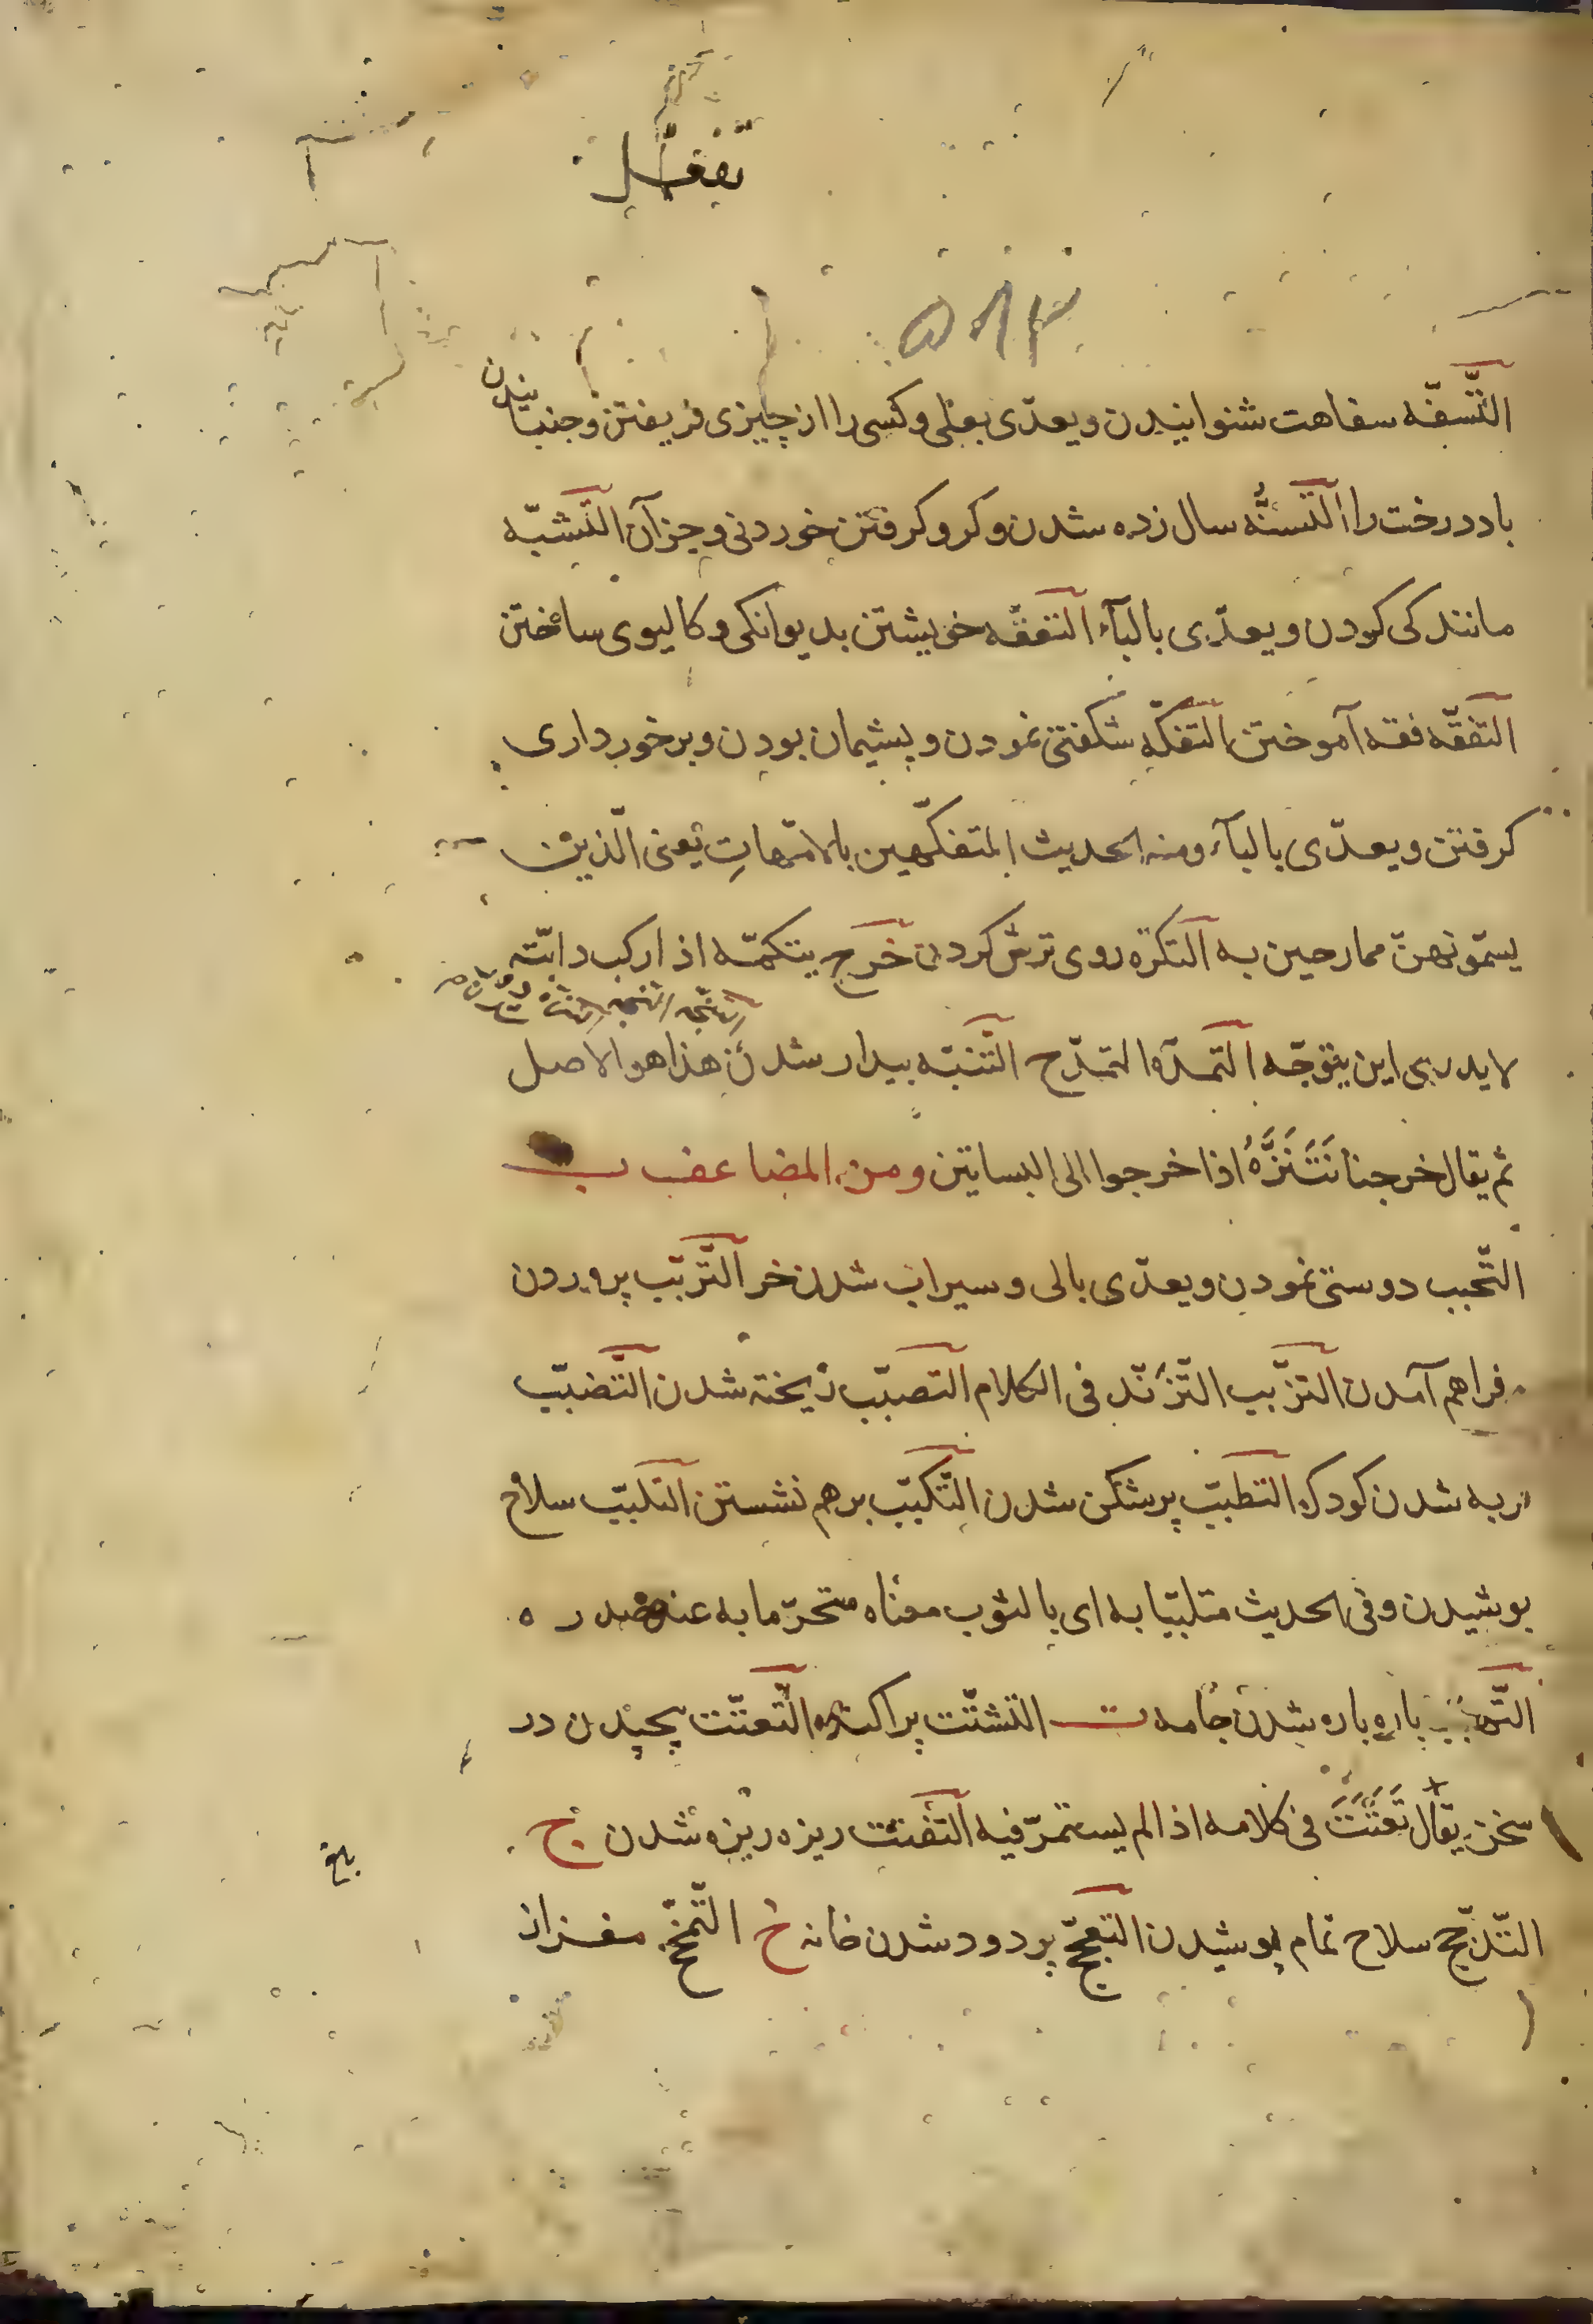 تفعّل
۵۹۳
التّسفّه سفاهت شنوانیدن ویعدّی بعلی وکسی را از چیزی فریفتن وجنبانیدن
باد درخت را التّسنّه سال زده شدن وکره کرفتن خوردنی وجزآن التّشبّه
مانندکی کردن ویعدّی بالبآء التعقّه خویشتن بدیوانکی وکالیوی ساختن
التفقّه فقه آموختن التفکّه شکفتی نمودن وپشیمان بودن وبرخورداری
کرفتن ویعدّی بالبآء ومنه الحدیث المتفکّهین بالامّهاتِ یعنی الّذین
یسمّونهنّ ممازحین به التکرّه روی ترش کردن خرج یتکمّه اذا رکب دابّته
لایدری این یتوجّه التمدّه التمدّح التّنبّه بیدار شدن هذا هو الاصل
ثم یقال خرجنا نَتَنَزَّهُ اذا خرجوا الی البساتین ومن المضاعف ب
التّحبب دوستی نمودن ویعدّی بالی وسیراب شدن خر التّربّب پروردن
فراهم آمدن التزبّب التّزبّد فی الکلام التصبّب ریخته شدن التّضبّب
فربه شدن کودک التطبّب پرشکن شدن التّکبّب برهم نشستن التلبّب سلاح
پوشیدن وفی الحدیث متلبّبا به ای بالثوب معناه متحرّما به عند صدره
باره باره شدن جامه ت التشتّت پراکنده التّعتّت پیچیدن در
سخن یقال تَعَتَّتَ فی کلامه اذا لم یستمرّ فیه التّفتّت ریزه ریزه شدن ج
التّدجّج سلاح تمام پوشیدن التعجّج پر دود شدن خانه خ التّمخّخ مغز از
بلغ